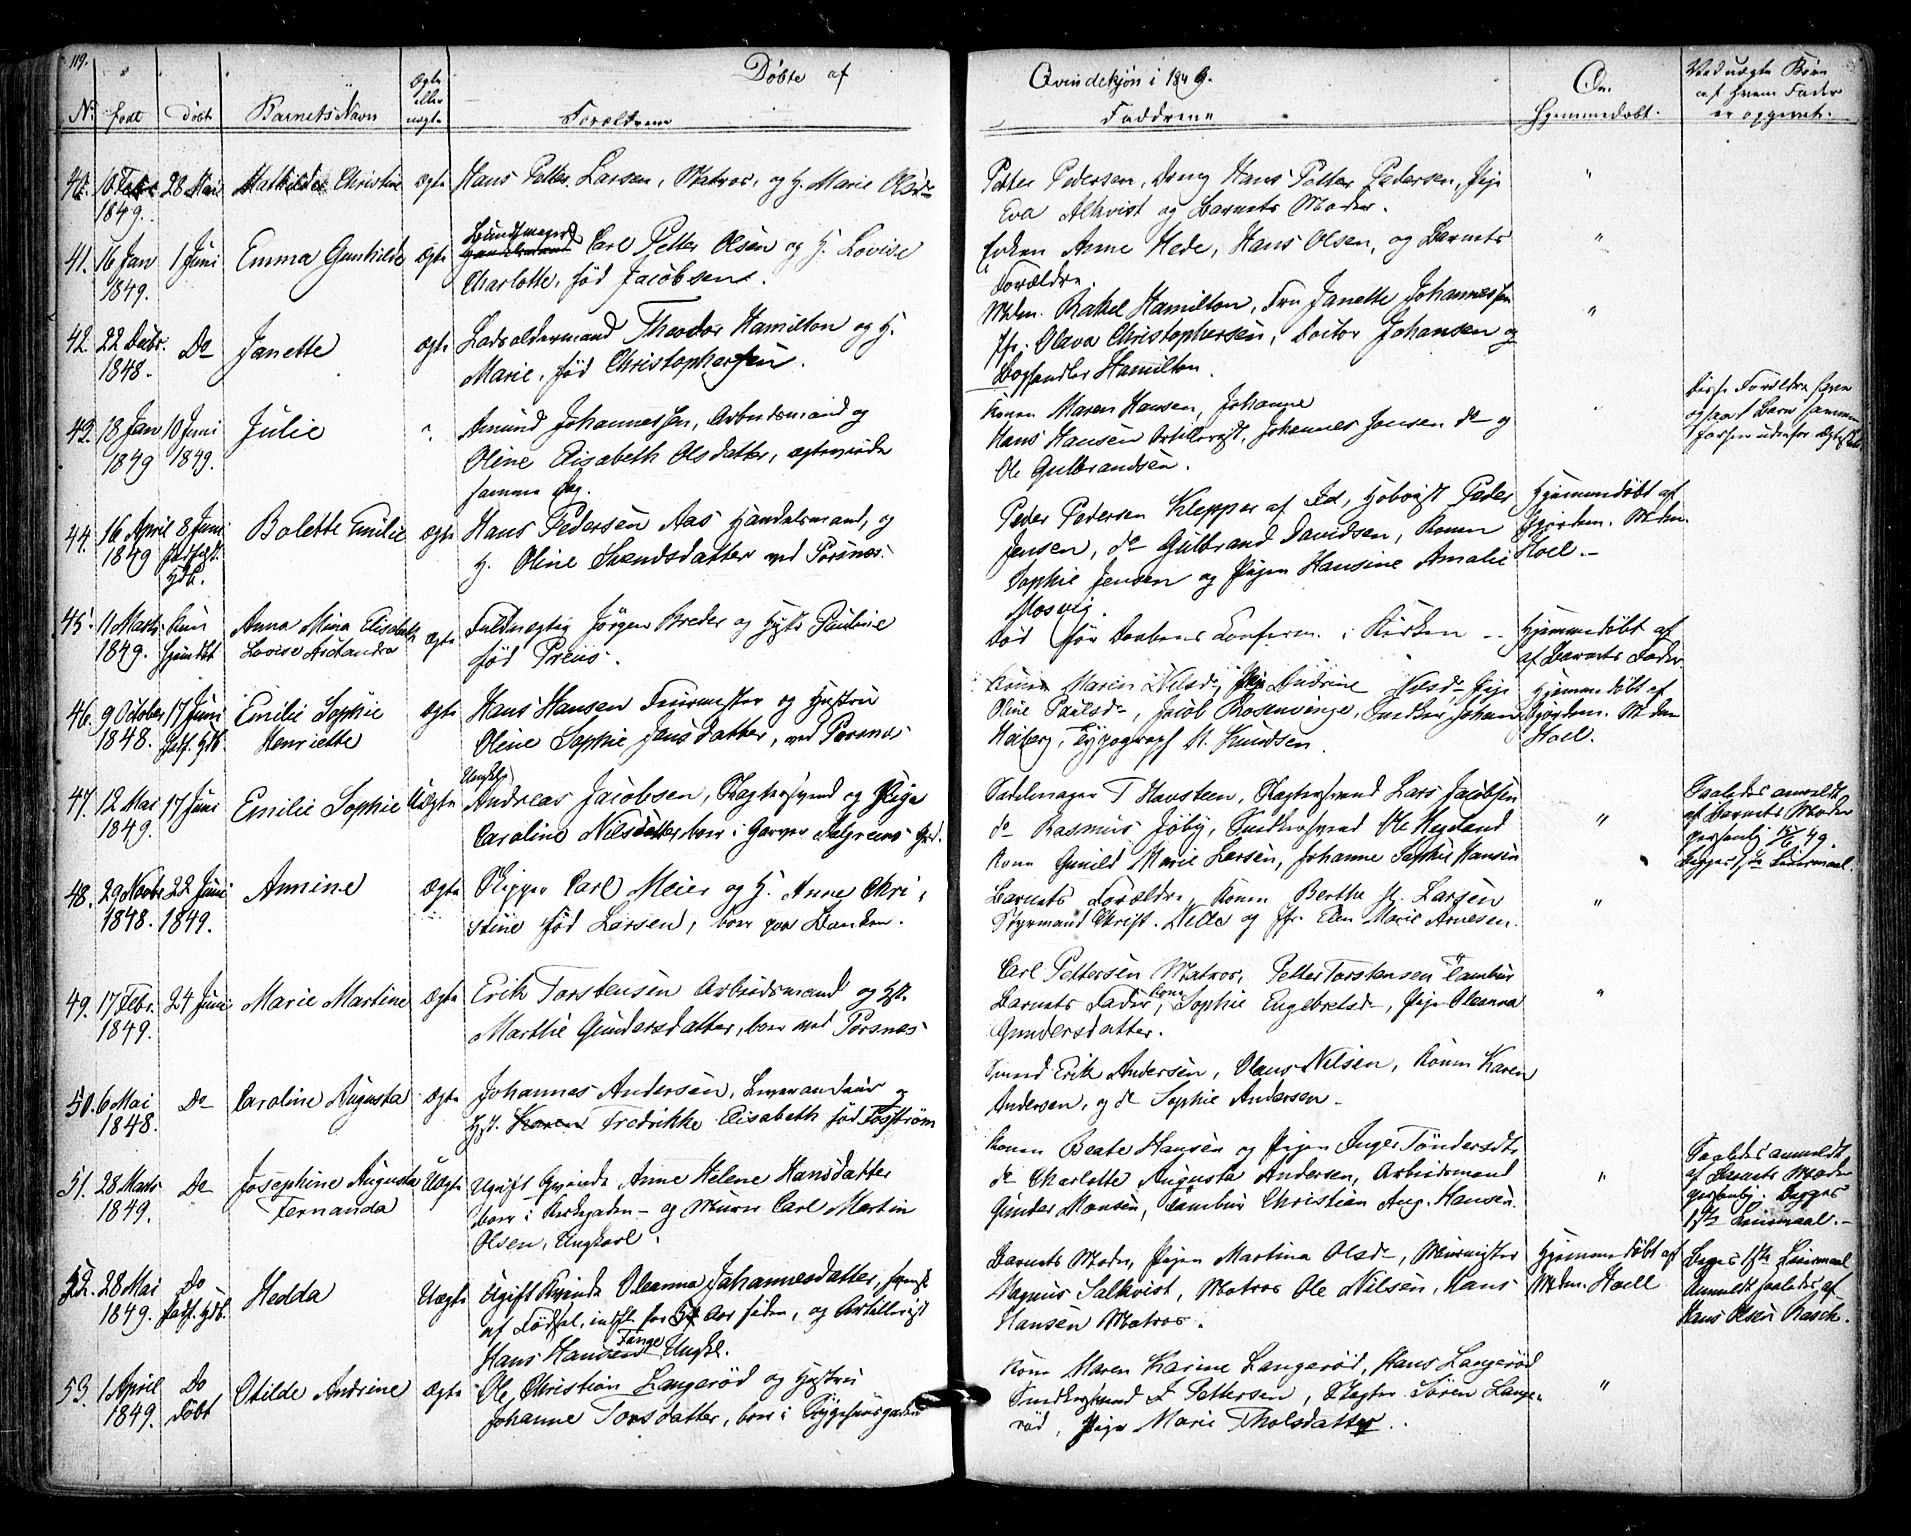 119.
Döbte af Qvindekjön i 1849.
No. født Døbt Barnets Navn Ægte eller uægte Forældrene Faddrene Om Hjemmedøbt. Ved uægte Børn af hvem Fader er opgivet.
40. 6 Febr 28 Mai Mathilde Christine ægte Hans Petter Larsen, Matros, og H. Marie Olsdr
1849.
Petter Pedersen, Dreng Hans Petter Pedersen, Pige
Eva Alkvist og Barnets Moder.
41. 16 Jan 1 Juni Emma Gunhilde ægte Bundtmager Carl Petter Olsen og H. Lovise
1849. Charlotte, fød Jacobsen.
Enken Anne Hede, Hans Olsen, og Barnets
Forældre.
42. 22 Decbr. Do Janette ægte Lodsoldermand Theodor Hamilton og H.
1848. Marie, fød Christophersen.
Mdm. Rakel Hamilton, Fru Janette Johannessen
Jfr. Olava Christophersen, Doctor Johansen og
Boghandler Hamilton.
43. 18 Jan 10 Juni Julie " Amund Johannessen, Arbeidsmand og
1849 1849. Oline Elisabeth Olsdatter, ægteviede
samme Dag.
Konen Maren Hansen, Johanne
Hans Hansen Artillerist, Johannes Jensen do og
Ole Gulbrandsen.
Disse Forældre have
ogsaa 1 Barn sammen
forhen udenfor Ægteskab
44. 16 April 8 Juni Bolette Emilie ægte Hans Pedersen Aas Handelsmand, og
1849 H. Oline Svendsdatter ved Porsnes.
Peder Pedersen Klepper af Id, Peder
Jensen, do Gulbrand Davidsen, Konen
Sophie Jensen og Pigen Hansine Amalie
Mosvig.
Hjemmedøbt af
Mdm.
Hoel.
45. 11 Marts Kun Anna Mina Elisabeth ægte Fuldmægtig Jörgen Breder og Hst Pauline
1849. hjemdbt Lovise fød Preus.
Död för Daabens Conferm. i Kirken
Hjemmedøbt af
af Barnets Fader
46. 9 October 17 Juni Emilie Sophie ægte Hans Hansen og Hustru
1848. Henriette Oline Sophie Jensdatter, ved Porsnes
Konen Maren Nilsd, Pige Andrine Nilsdr Pige
Oline Paulsdr, Jacob Rosenvinge, Snedker Johan
Heiberg, Typograph H. Knudsen.
Hjemmedøbt af
Mdm
Hoel.
47. 12 Mai 17 Juni Emilie Sophie Uægte Ungkl Andreas Jacobsen, Slagtersvend og Pige
1849. Caroline Nilsdatter boer i Garver Gaard.
Sadelmager T Havsteen, Slagtersvend Lars Jacobsen
do Rasmus Joby, Snedkersvend Ole Hegeland
Kone Gunild Marie Larsen, Johanne Sophie Hansen
Saaledes anmeldt
af Barnets Moder
personlig 49.
Begges 1ste Leiermaal.
48. 29 Novbr 22 Juni Annine Ægte Skipper Carl Meier og H. Anne Chri-
1848. 1849. stine fød Larsen, boer paa Banken.
Barnets Forældre, Konen Berthe M. Larsen
Styrmand Christ. Nells og Jfr. Elen Marie Arnesen.
49. 17 Febr. 24 Juni Marie Martine Ægte Erik Torstensen Arbeidsmand og Hst.
1849. Marthe Gundersdatter, boer ved Porsnes
Carl Pettersen Matros, Petter Torstensen Tambur
Barnets Fader, Kone Sophie Engebretsdr, Pige Oleanna
Gundersdatter.
50. 6 Mai Do Caroline Augusta ægte Johannes Andersen, og
1848. Hst. Karen Fredrikke Elisabeth fød Fosström
Svend Erik Andersen, Olaus Nilsen, Konen Karen
Andersen, og do Sophie Andersen
51. 28 Marts Do Josephine Augusta Uægte Ugift Qvinde Anne Helene Hansdatter
1849. Fernanda boer i Kirkegaden og Murer Carl Martin
Olsen, Ungkarl.
Konen Beate Hansen og Pigen Inger Tøndersdtr
do Charlotte Augusta Andersen, Arbeidsmand
Gunder Monsen, Tambur Christian Aug. Hansen.
Saaledes anmeldt
af Barnets Moder
personlig. Begges
1ste Leiermaal.
52. 28 Mai Do Hedda Uægte Ugift Kvinde Oleanna Johannesdatter, svensk
1849. af Fødsel, indfl. for Aar siden, og Artillerist
Hans Hansen Tange Ungkl.
Barnets Moder, Pigen Martina Olsdr, Muurmester
Magnus Salkvist, Matros Ole Nilsen, Hans
Hansen Matros.
Hjemmedøbt af
Mdm. Hoell
Begges 1ste Leiermaal
Anmeldt saaledes af
Hans Olsen Rasch.
53. 1 April Do Otilde Andrine Ægte Ole Christian Langerød og Hustru
1849. Døbt Johanne Torsdatter, boer i
Kone Maren Karine Langerød, Hans Langerød
Snedkersvend I Pettersen, Slagter Sören Lange-
rød, Pige Marie Tholsdatter.